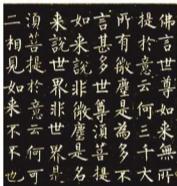 佛言世尊如來無所
提於意云何三千大
所有微塵是為多不
言甚多世尊須菩
如來說非微塵是名
來說世界非世界是
須菩提於意云何可
二相見如來不不也